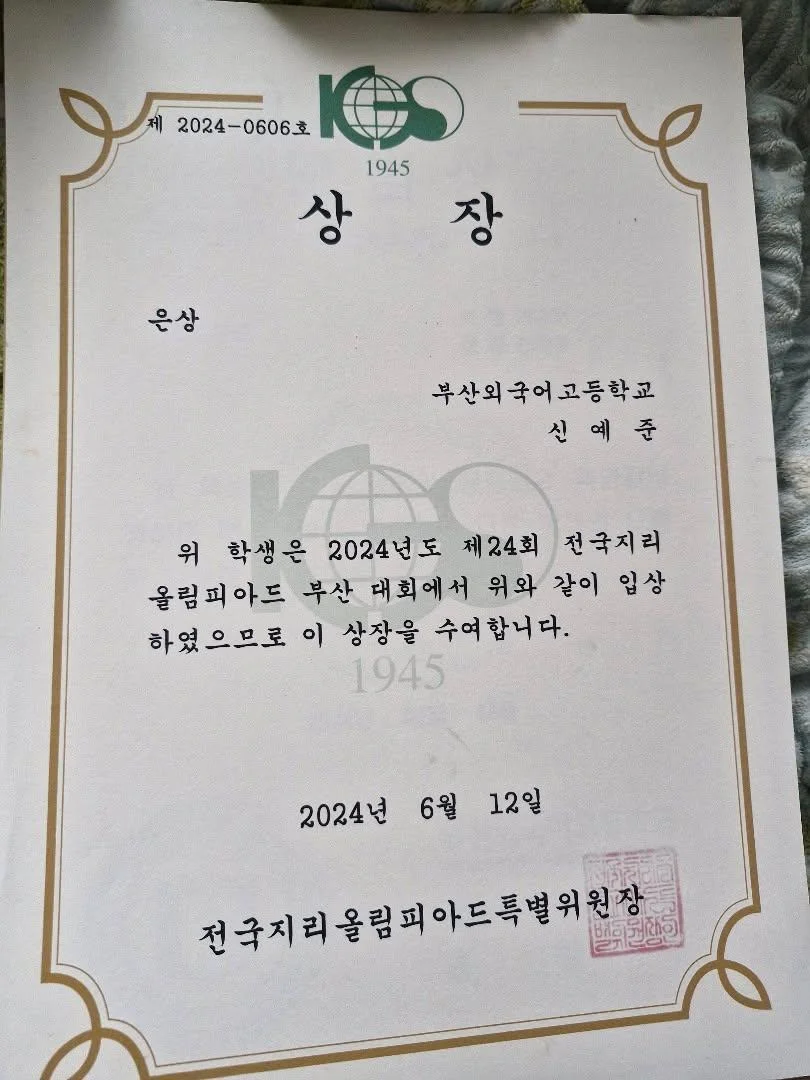 제 2024-0606호
KGS
1945
상 장
은상
부산외국어고등학교
신 예 준
위 학생은 2024년도 제24회 전국지리
올림피아드 부산 대회에서 위와 같이 입상
하였으므로 이 상장을 수여합니다.
1945
2024년 6월 12일
전국지리올림피아드특별위원장